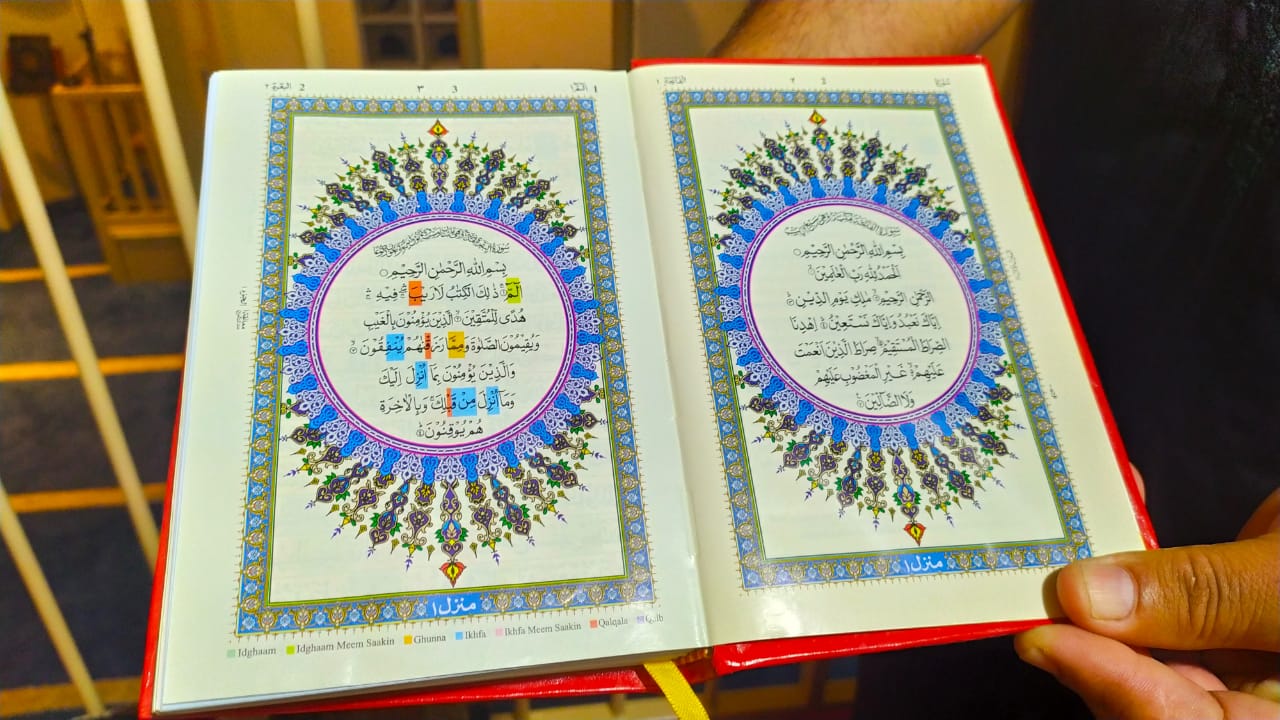 الفاتحة ١
٢
2
بِسْمِ اللهِ الرَّحْمٰنِ الرَّحِيْمِ
اَلْحَمْدُ لِلّٰهِ رَبِّ الْعَالَمِيْنَ ۙ
الرَّحْمٰنِ الرَّحِيْمِ ۙ مٰلِكِ يَوْمِ الدِّيْنِ ؕ
اِيَّاكَ نَعْبُدُ وَاِيَّاكَ نَسْتَعِيْنُ ؕ اِهْدِنَا
الصِّرَاطَ الْمُسْتَقِيْمَ ۙ صِرَاطَ الَّذِيْنَ اَنْعَمْتَ
عَلَيْهِمْ ۙ غَيْرِ الْمَغْضُوْبِ عَلَيْهِمْ
وَلَا الضَّآلِّيْنَ
منزل ١
1 الٓمّٓ ١
3 ٣
البقرة ٢ 2
بِسْمِ اللهِ الرَّحْمٰنِ الرَّحِيْمِ
الٓمّٓ ۚ ذٰلِكَ الْكِتٰبُ لَا رَيْبَ ۛ فِيْهِ ۛ
هُدًى لِّلْمُتَّقِيْنَ ۙ الَّذِيْنَ يُؤْمِنُوْنَ بِالْغَيْبِ
وَيُقِيْمُوْنَ الصَّلٰوةَ وَمِمَّا رَزَقْنٰهُمْ يُنْفِقُوْنَ ۙ
وَالَّذِيْنَ يُؤْمِنُوْنَ بِمَآ اُنْزِلَ اِلَيْكَ
وَمَآ اُنْزِلَ مِنْ قَبْلِكَ ۚ وَبِالْاٰخِرَةِ
هُمْ يُوْقِنُوْنَ ؕ
منزل ١
Idghaam Idghaam Meem Saakin Ghunna Ikhfa Ikhfa Meem Saakin Qalqala Qalb